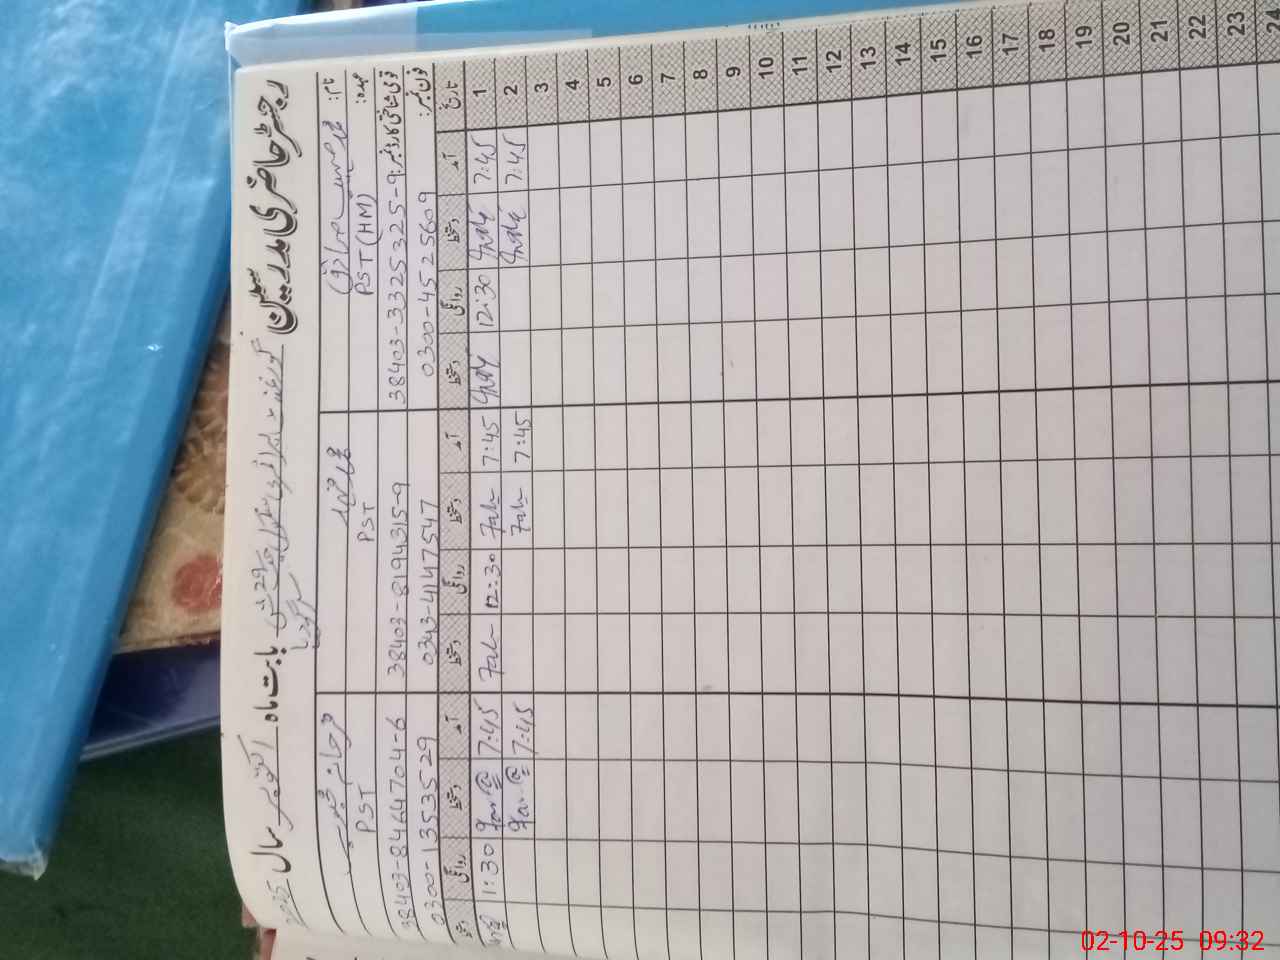 رجسٹر حاضری مدرسین گورنمنٹ سکول 29 بابت ماہ اکتوبر سال 2025
سرگودھا
نام:
عہدہ: PST (HM)
قومی شناختی کارڈ نمبر: 38403-3325325-9
فون نمبر: 0300-4525609
PST
38403-8194315-9
0343-4147547
PST
38403-8464704-6
0300-1353529
تاریخ آمد دستخط روانگی دستخط آمد دستخط روانگی دستخط آمد دستخط روانگی دستخط
1 7:45 12:30 7:45 12:30 7:45 1:30
2 7:45 7:45 7:45
3
4
5
6
7
8
9
10
11
12
13
14
15
16
17
18
19
20
21
22
23
24
02-10-25 09:32